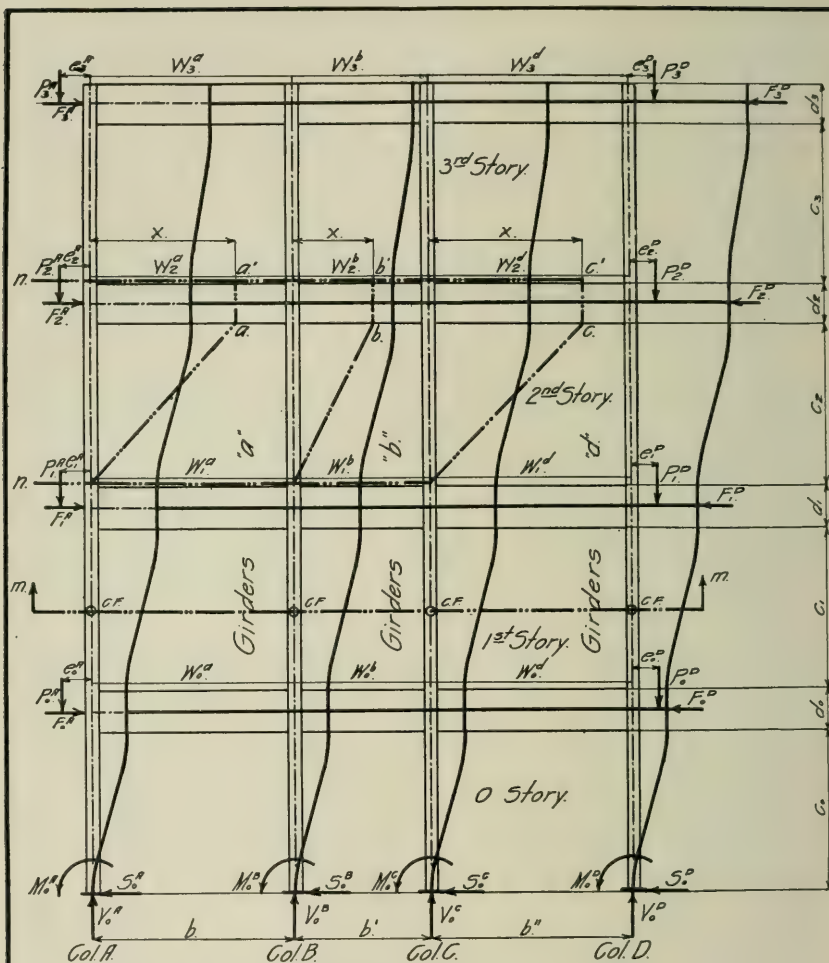 W₃ᵃ. W₃ᵇ. W₃ᵈ.
e₃ᴬ e₃ᴰ
P₃ᴬ P₃ᴰ
F₃ᴬ F₃ᴰ
d₃
3rd Story.
c₃
x. x. x.
P₂ᴬ e₂ᴬ W₂ᵃ a' W₂ᵇ b' W₂ᵈ c' e₂ᴰ P₂ᴰ
n.
F₂ᴬ F₂ᴰ
d₂
a. b. c.
2nd Story.
c₂
"a" "b." "d."
P₁ᴬ e₁ᴬ W₁ᵃ W₁ᵇ W₁ᵈ e₁ᴰ P₁ᴰ
n.
F₁ᴬ F₁ᴰ
d₁
m. m.
C.F. C.F. C.F. C.F.
c₁
Girders Girders Girders
1st Story.
e₀ᴬ W₀ᵃ W₀ᵇ W₀ᵈ e₀ᴰ
P₀ᴬ P₀ᴰ
F₀ᴬ F₀ᴰ
d₀
0 Story.
c₀
M₀ᴬ S₀ᴬ M₀ᴮ S₀ᴮ M₀ᶜ S₀ᶜ M₀ᴰ S₀ᴰ
V₀ᴬ V₀ᴮ V₀ᶜ V₀ᴰ
b. b'. b".
Col.A. Col.B. Col.C. Col.D.